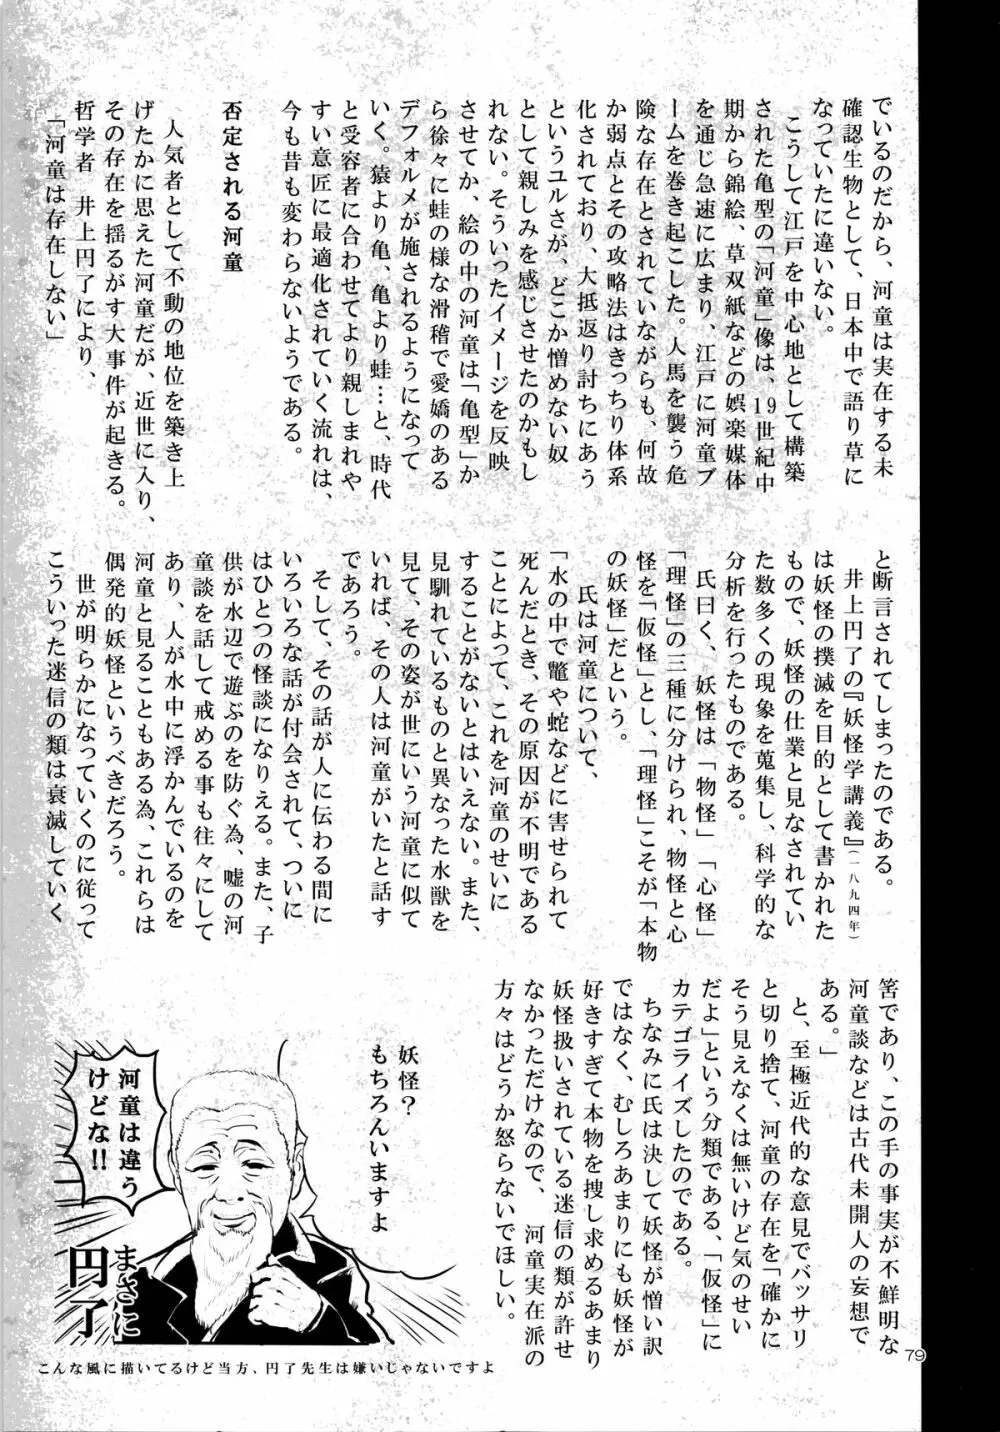 でいるのだから、河童は実在する未
確認生物として、日本中で語り草に
なっていたに違いない。
こうして江戸を中心地として構築
された亀型の「河童」像は、19世紀中
期から錦絵、草双紙などの娯楽媒体
を通じ急速に広まり、江戸に河童ブ
ームを巻き起こした。人馬を襲う危
険な存在とされていながらも、何故
か弱点とその攻略法はきっちり体系
化されており、大抵返り討ちにあう
というユルさが、どこか憎めない奴
として親しみを感じさせたのかもし
れない。そういったイメージを反映
させてか、絵の中の河童は「亀型」か
ら徐々に蛙の様な滑稽で愛嬌のある
デフォルメが施されるようになって
いく。猿より亀、亀より蛙…と、時代
と受容者に合わせてより親しまれや
すい意匠に最適化されていく流れは、
今も昔も変わらないようである。
否定される河童
人気者として不動の地位を築き上
げたかに思えた河童だが、近世に入り、
その存在を揺るがす大事件が起きる。
哲学者 井上円了により、
「河童は存在しない」
と断言されてしまったのである。
井上円了の『妖怪学講義』(一八九四年)
は妖怪の撲滅を目的として書かれた
もので、妖怪の仕業と見なされてい
た数多くの現象を蒐集し、科学的な
分析を行ったものである。
氏曰く、妖怪は「物怪」「心怪」
「理怪」の三種に分けられ、物怪と心
怪を「仮怪」とし、「理怪」こそが「本物
の妖怪」だという。
氏は河童について、
「水の中で鼈や蛇などに害せられて
死んだとき、その原因が不明である
ことによって、これを河童のせいに
することがないとはいえない。また、
見馴れているものと異なった水獣を
見て、その姿が世にいう河童に似て
いれば、その人は河童がいたと話す
であろう。
そして、その話が人に伝わる間に
いろいろな話が付会されて、ついに
はひとつの怪談になりえる。また、子
供が水辺で遊ぶのを防ぐ為、嘘の河
童談を話して戒める事も往々にして
あり、人が水中に浮かんでいるのを
河童と見ることもある為、これらは
偶発的妖怪というべきだろう。
世が明らかになっていくのに従って
こういった迷信の類は衰滅していく
筈であり、この手の事実が不鮮明な
河童談などは古代未開人の妄想で
ある。」
と、至極近代的な意見でバッサリ
と切り捨て、河童の存在を「確かに
そう見えなくは無いけど気のせい
だよ」という分類である、「仮怪」に
カテゴライズしたのである。
ちなみに氏は決して妖怪が憎い訳
ではなく、むしろあまりにも妖怪が
好きすぎて本物を捜し求めるあまり
妖怪扱いされている迷信の類が許せ
なかっただけなので、河童実在派の
方々はどうか怒らないでほしい。
妖怪?
もちろんいますよ
河童は違う
けどな!!
まさに
円了
こんな風に描いてるけど当方、円了先生は嫌いじゃないですよ
79